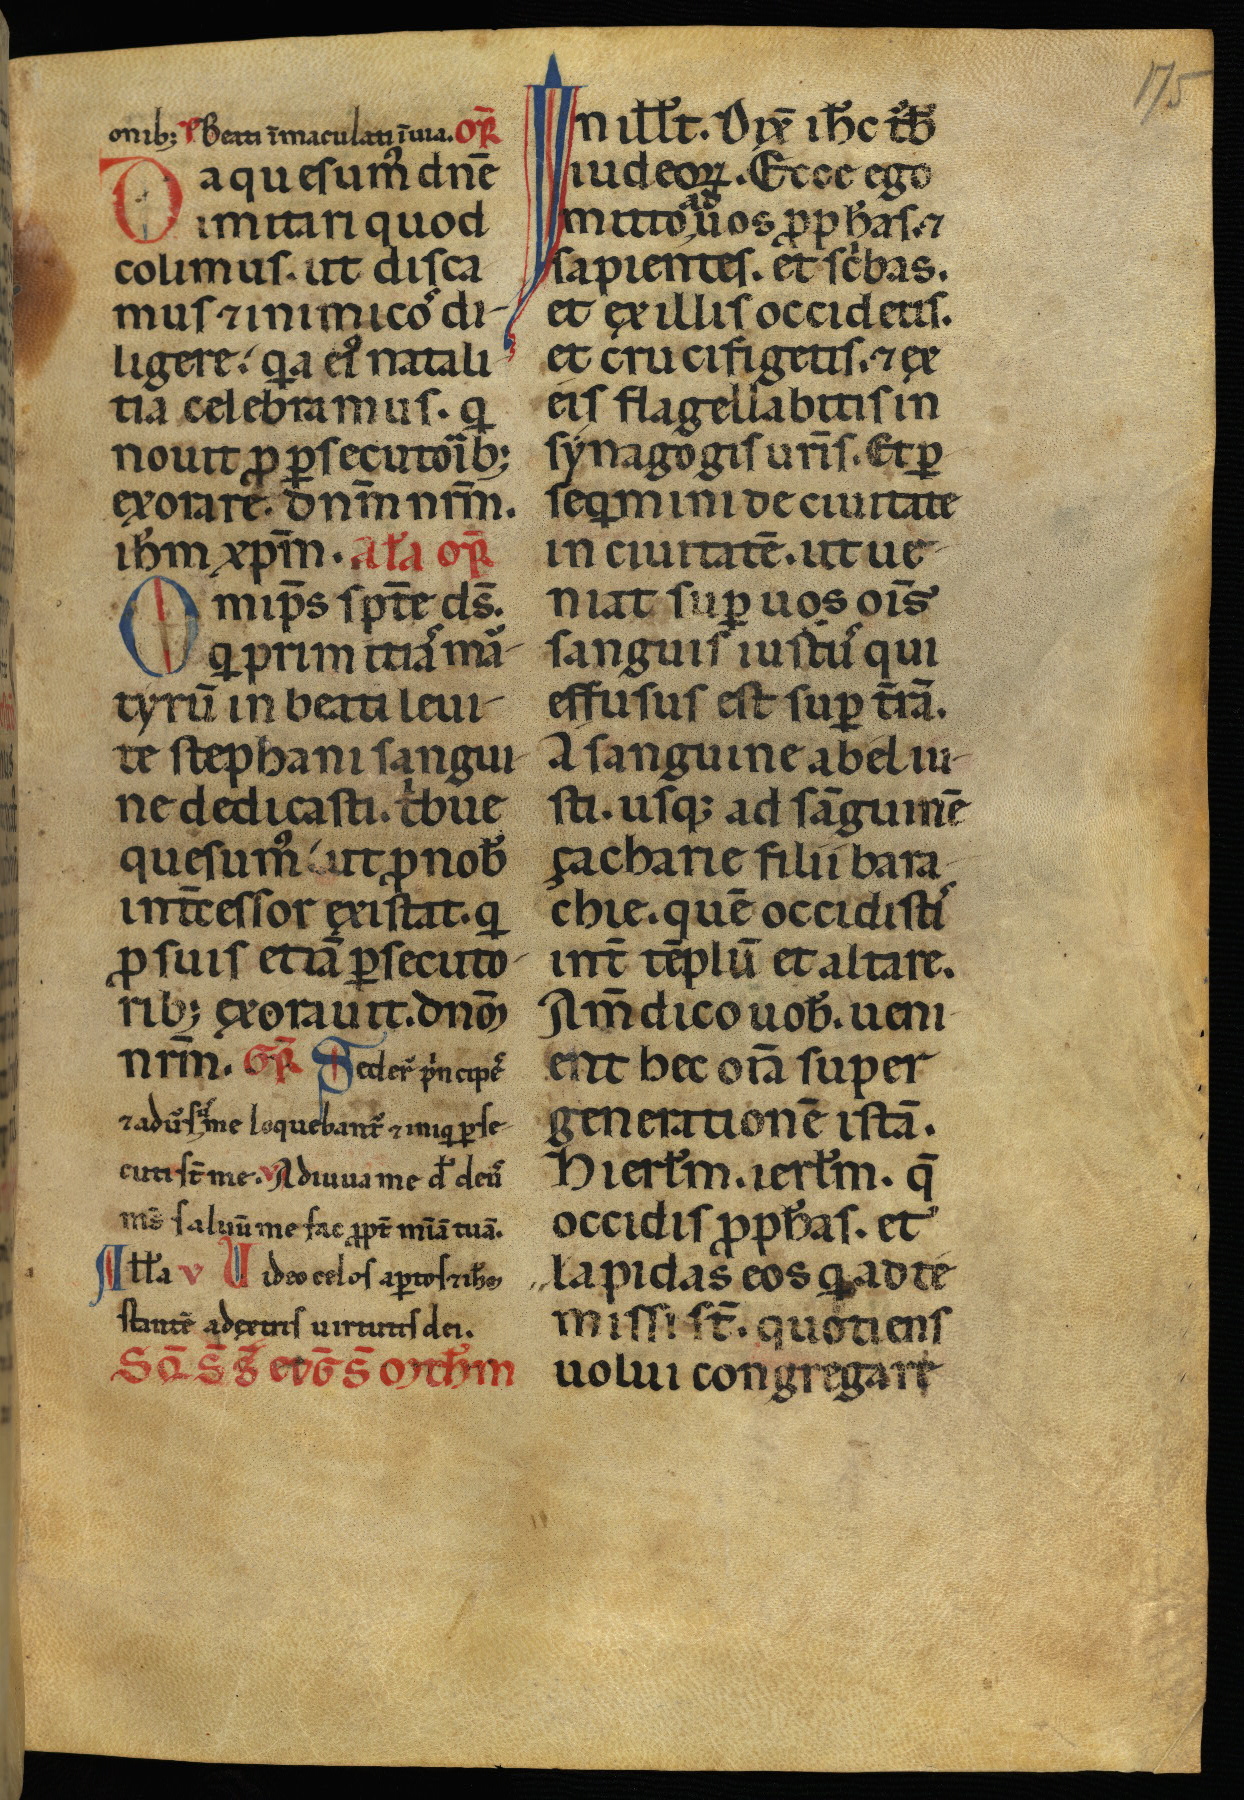 175
onib; P Beati īmaculati ī uia. OR̄
Da quesum᷒ dn̄e
imitari quod
colimus. ut disca
mus ⁊ inimicos di-
ligere. qͥa ei᷒ natali
tia celebramus. qͥ
nouit ꝓ ꝑsecutoib;
exorare. dn̄m nr̄m.
ih̄m xp̄m. al̄ia OR̄
Omip̄s sp̄te ds̄.
qͥ primitias ma-
tyrū in beati leui-
te stephani sangui-
ne dedicasti. tͥbue
quesum᷒ ut ꝓ nob̄
int̄cessor existat. qͥ
ꝓ suis etiā ꝑsecuto-
rib; exorauit. dnō
nr̄m. GR̄ Seder᷑ pͥncipes
⁊ adūsū me loquebant᷑ ⁊ iniqͥ ꝑse-
cuti st̄ me. V Adiuua me dn̄ deus
ms̄ saluū me fac ꝓpt̄ mīa tuā.
All̄a V Uideo celos aꝑtos ⁊ ih̄m
stantē a dextris uirtutis dei.
SQ̄. S̄. S̄. EVḠ. S̄. Mth̄m
In ill̄ t. Dix̄ ih̄c tͥb
iudeoꝝ. Ecce ego
mitto ad uos ꝓph̄as. ⁊
sapientes. et scͥbas.
et ex illis occidetis.
et crucifigetis. ⁊ ex
eis flagellabitis in
synagogis ur̄is. Et ꝑ
seqͥmini de ciuitate
in ciuitatē. ut ue-
niat suꝑ uos oīs
sanguis iustus qui
effusus est suꝑ t̄rā.
A sanguine abel iu-
sti. usq; ad sāguinē
çacharie filii bara-
chie. quē occidistis
int̄ tēplū et altare.
Am̄ dico uob̄. ueni-
ent hec oīa super
generationē istā.
Hierl̄m. ierl̄m. q̄
occidis ꝓph̄as. et
lapidas eos qͥ ad te
missi st̄. quotiens
uolui congregare